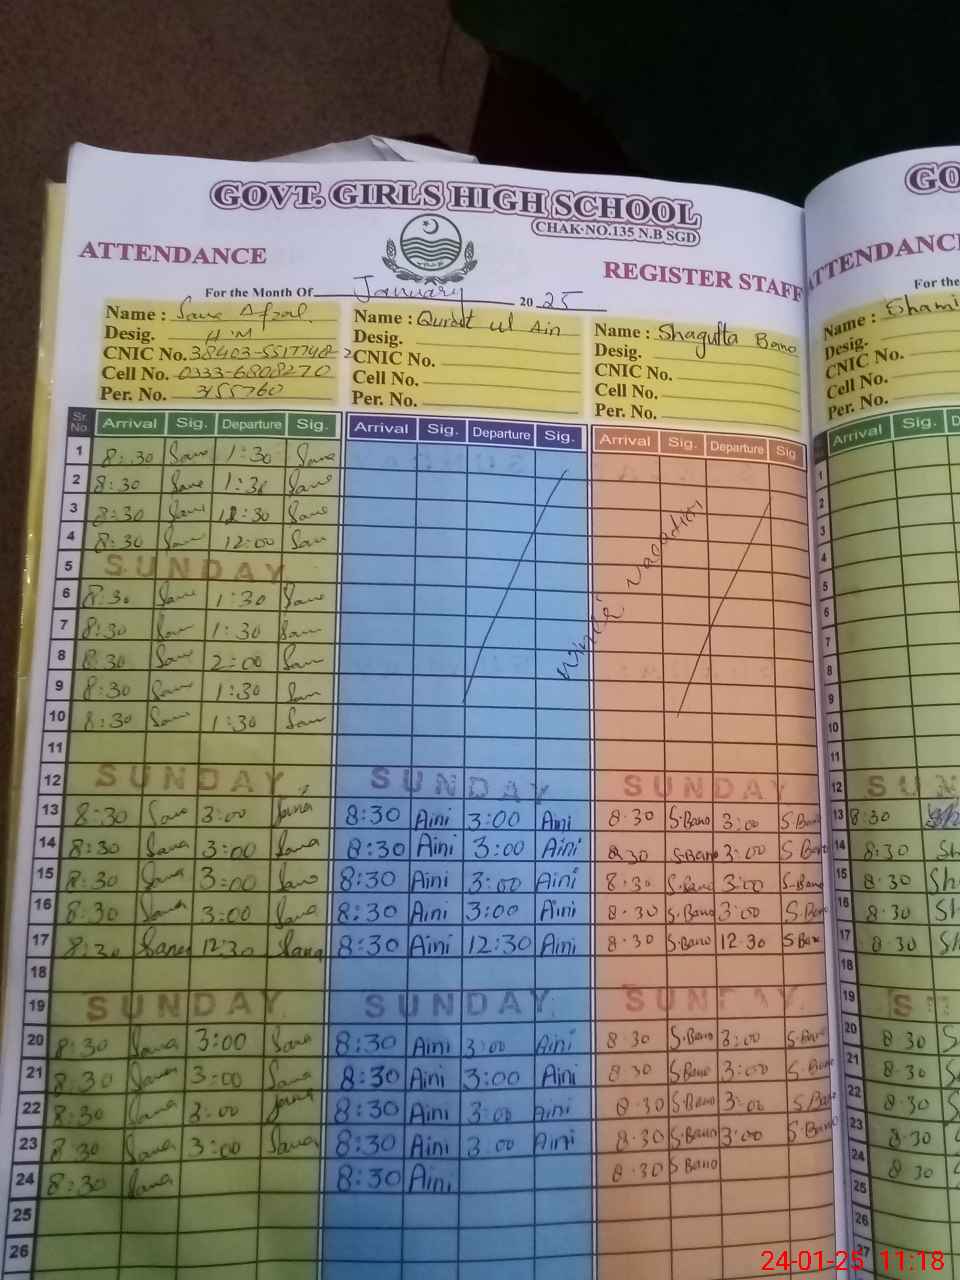 GOVT. GIRLS HIGH SCHOOL
CHAK-NO.135 N.B SGD
ATTENDANCE
REGISTER STAFF
For the Month Of January 20 25
Name : Sana Afzal
Desig. H M
CNIC No. 38403-5517748-2
Cell No. 0333-6808270
Per. No. 3155760
Name : Qurat ul Ain
Desig.
CNIC No.
Cell No.
Per. No.
Name : Shagufta Bano
Desig.
CNIC No.
Cell No.
Per. No.
Sr. No. Arrival Sig. Departure Sig. Arrival Sig. Departure Sig. Arrival Sig. Departure Sig
1 8:30 Sana 1:30 Sana
2 8:30 Sana 1:30 Sana
3 8:30 Sana 12:30 Sana
4 8:30 Sana 12:00 Sana
5 SUNDAY
6 8:30 Sana 1:30 Sana
7 8:30 Sana 1:30 Sana
8 8:30 Sana 2:00 Sana
9 8:30 Sana 1:30 Sana
10 8:30 Sana 1:30 Sana
Winter Vacation
11
12 SUNDAY SUNDAY SUNDAY
13 8:30 Sana 3:00 Sana 8:30 Aini 3:00 Aini 8:30 S.Bano 3:00 S.Bano
14 8:30 Sana 3:00 Sana 8:30 Aini 3:00 Aini 8:30 S.Bano 3:00 S.Bano
15 8:30 Sana 3:00 Sana 8:30 Aini 3:00 Aini 8:30 S.Bano 3:00 S.Bano
16 8:30 Sana 3:00 Sana 8:30 Aini 3:00 Aini 8:30 S.Bano 3:00 S.Bano
17 8:30 Sana 12:30 Sana 8:30 Aini 12:30 Aini 8:30 S.Bano 12:30 S.Bano
18
19 SUNDAY SUNDAY SUNDAY
20 8:30 Sana 3:00 Sana 8:30 Aini 3:00 Aini 8:30 S.Bano 3:00 S.Bano
21 8:30 Sana 3:00 Sana 8:30 Aini 3:00 Aini 8:30 S.Bano 3:00 S.Bano
22 8:30 Sana 3:00 Sana 8:30 Aini 3:00 Aini 8:30 S.Bano 3:00 S.Bano
23 8:30 Sana 3:00 Sana 8:30 Aini 3:00 Aini 8:30 S.Bano 3:00 S.Bano
24 8:30 Sana 8:30 Aini 8:30 S Bano
25
26
GO
ATTENDANCE
For the
Name : Shami
Desig.
CNIC No.
Cell No.
Per. No.
Arrival Sig. D
1
2
3
4
5
6
7
8
9
10
11
12 SUN
13 8:30 Sh
14 8:30 Sh
15 8:30 Sh
16 8:30 Sh
17 8:30 Sh
18
19 S
20 8 30 S
21 8:30 S
22 8:30 S
23 8:30
24 8 30
25
26
27
24-01-25 11:18